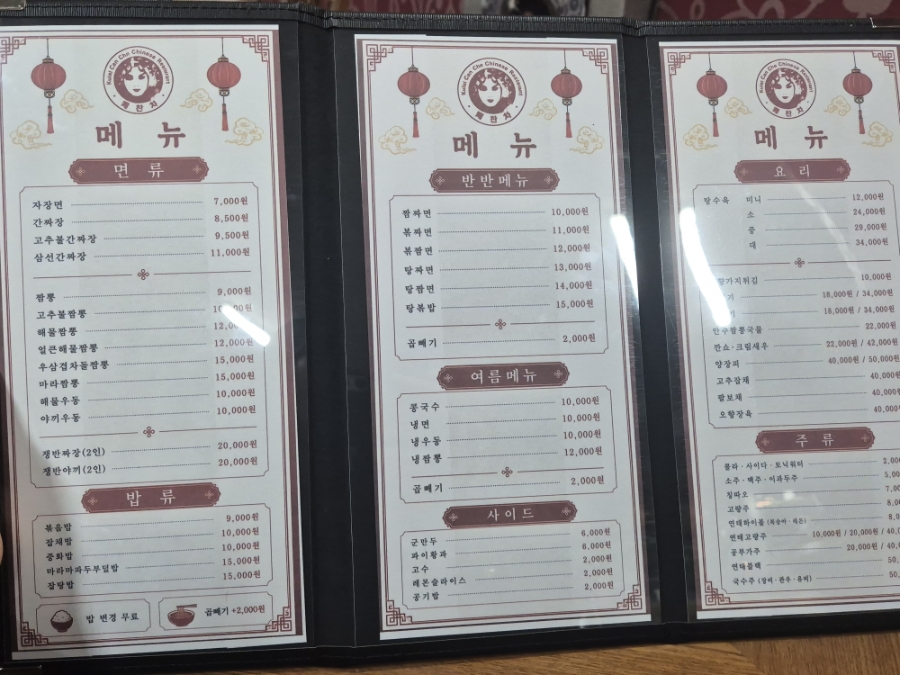 메 뉴
면 류
자장면 7,000원
간짜장 8,500원
고추불간짜장 9,500원
삼선간짜장 11,000원
짬뽕 9,000원
고추불짬뽕
해물짬뽕
얼큰해물짬뽕 12,000원
우삼겹차돌짬뽕 15,000원
마라짬뽕 15,000원
해물우동 10,000원
야끼우동 10,000원
쟁반짜장(2인) 20,000원
쟁반야끼(2인) 20,000원
밥 류
볶음밥 9,000원
잡채밥 10,000원
중화밥 10,000원
마라마파두부덮밥 15,000원
잡탕밥 15,000원
밥 변경 무료
곱빼기 +2,000원
메 뉴
반반메뉴
짬짜면 10,000원
볶짜면 11,000원
볶짬면 12,000원
탕짜면 13,000원
탕짬면 14,000원
탕볶밥 15,000원
곱빼기 2,000원
여름메뉴
콩국수 10,000원
냉면 10,000원
냉우동 10,000원
냉짬뽕 12,000원
곱빼기 2,000원
사이드
군만두 6,000원
파이황과 6,000원
고수 2,000원
레몬슬라이스 2,000원
공기밥 2,000원
메 뉴
요 리
탕수육 미니 12,000원
소 24,000원
중 29,000원
대 34,000원
가지튀김 10,000원
기 18,000원 / 34,000원
18,000원 / 34,000원
안주짬뽕국물 22,000원
깐쇼·크림새우 22,000원 / 42,000원
양장피 40,000원 / 50,000원
고추잡채 40,000원
팔보채 40,000
오향장육 40,000
주 류
콜라·사이다·토닉워터
소주·맥주·이과두주
칭따오
고량주
연태하이볼
연태고량주 10,000원 / 20,000원
공부가주 20,000원
연태블랙
국수주